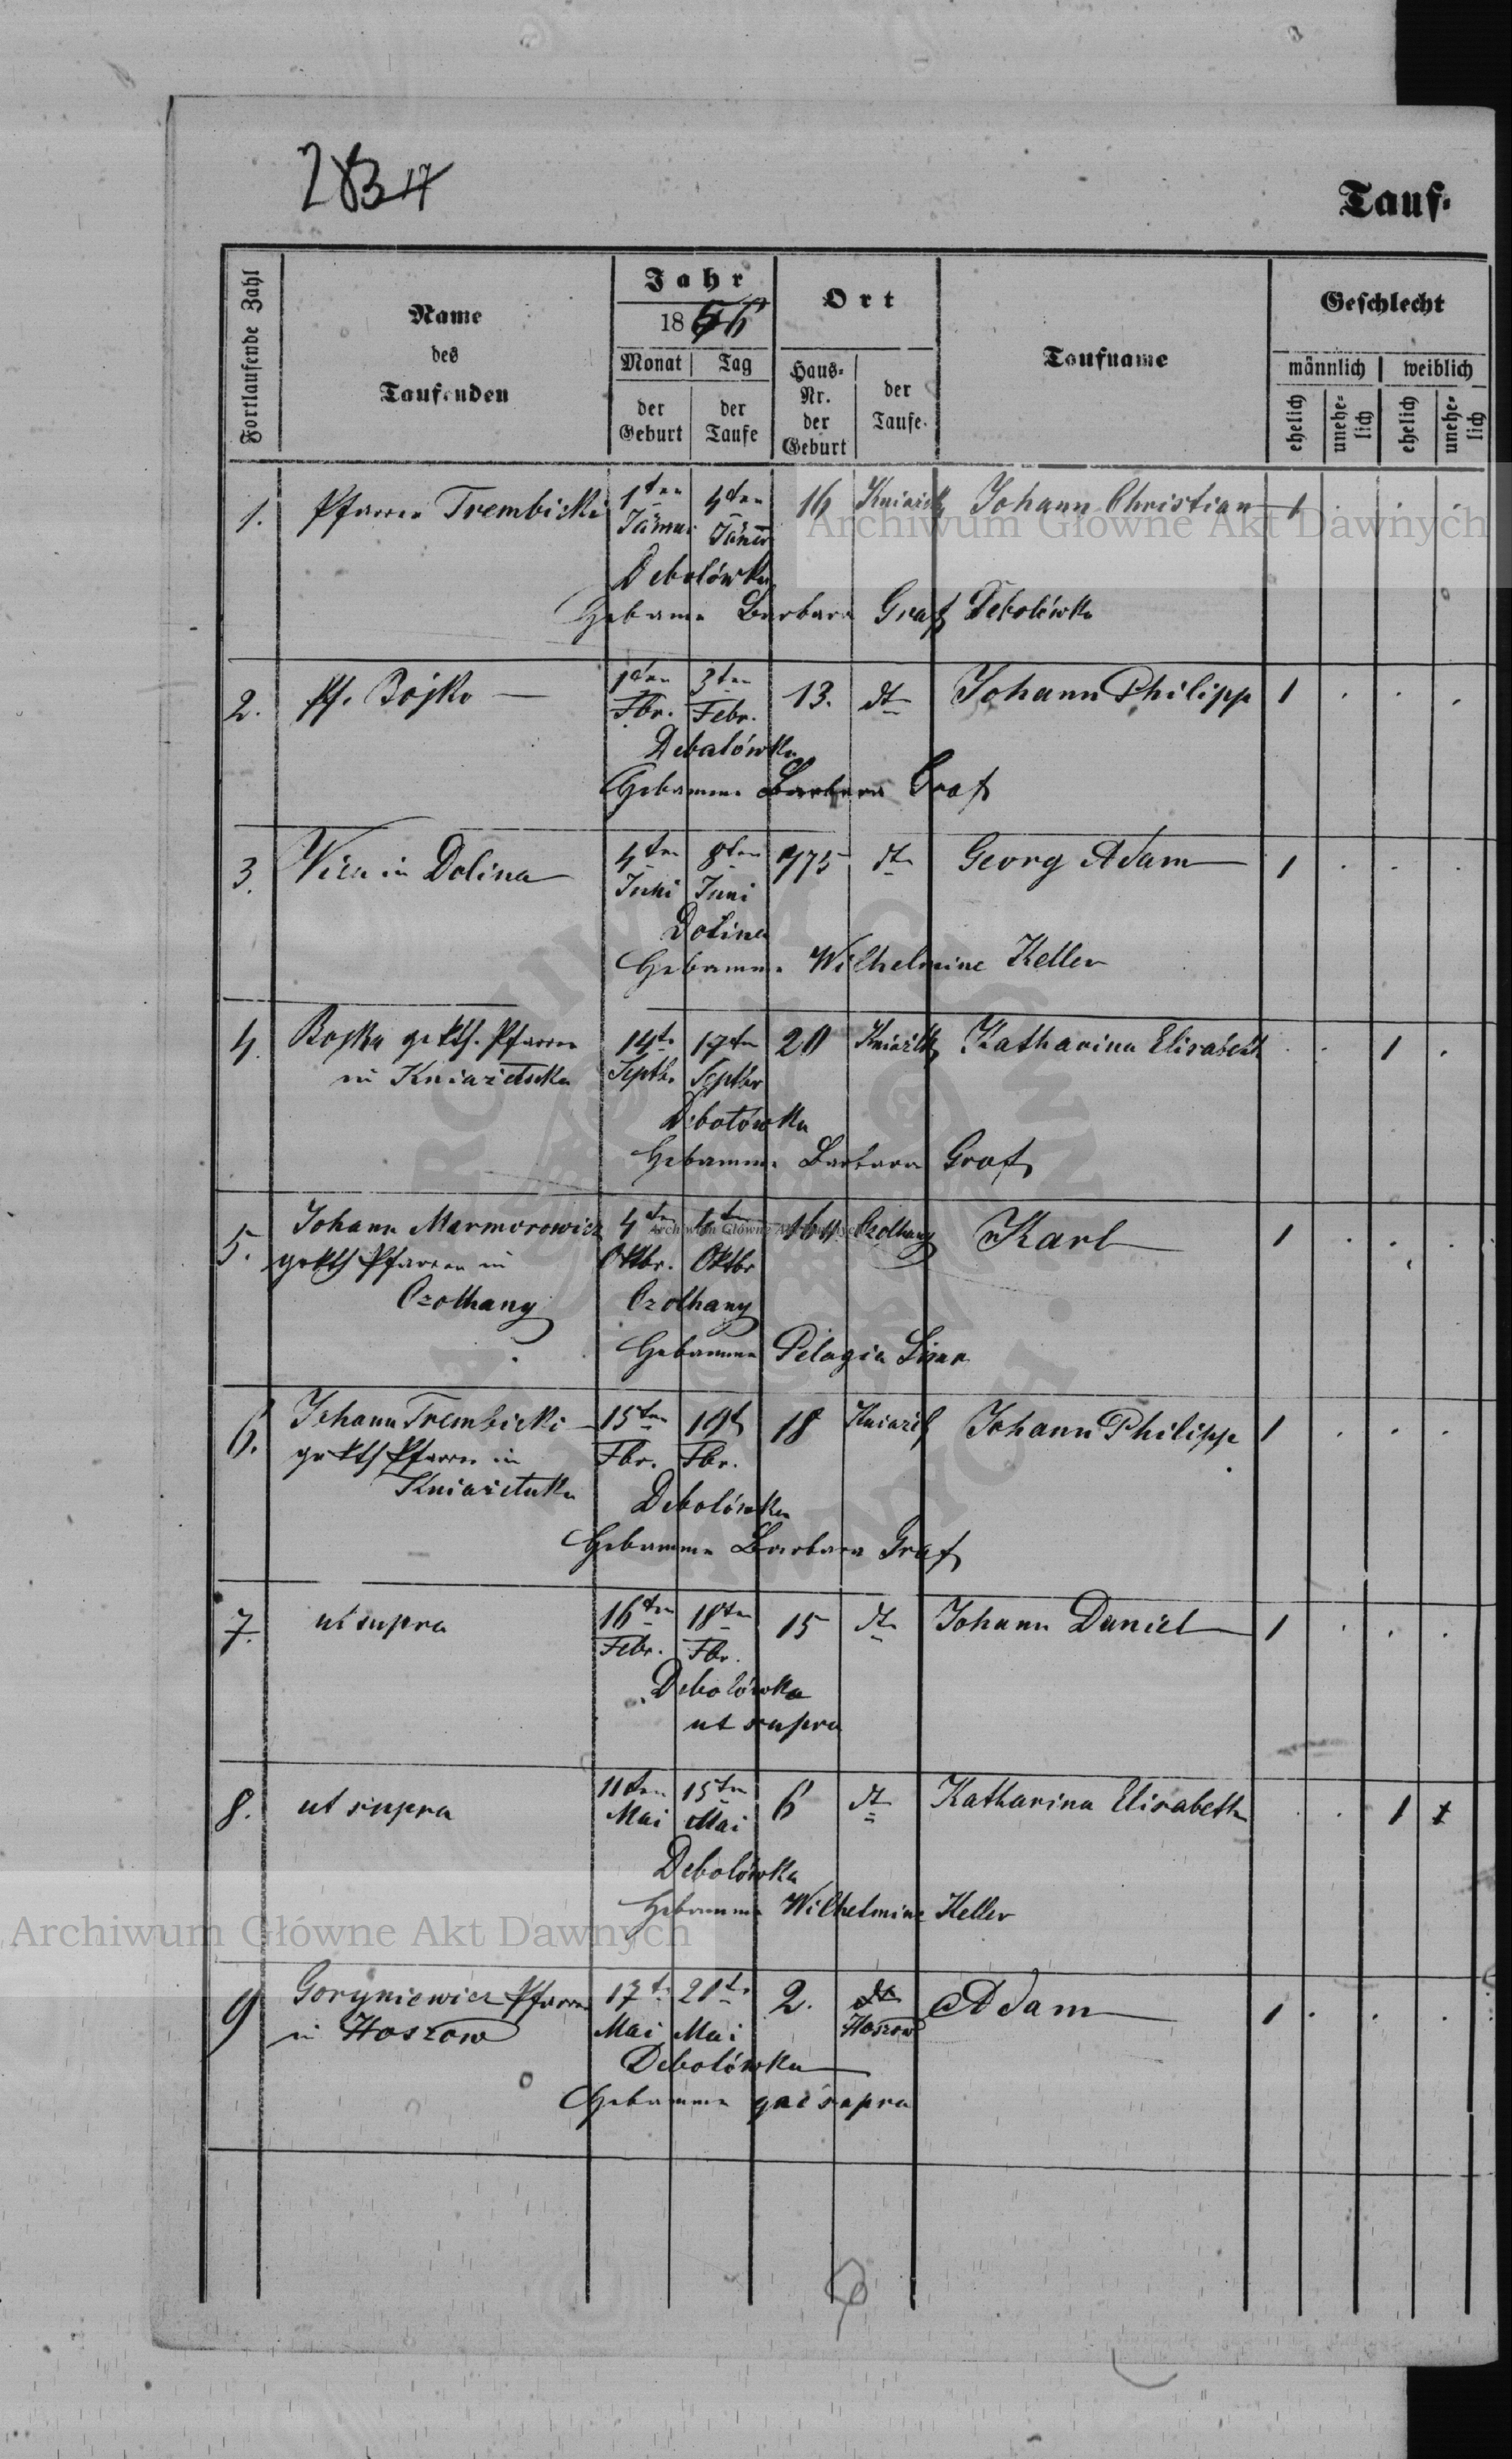 283
Tauf-
Fortlaufende Zahl
Name
des
Taufenden
Jahr
1856
Monat
Tag
der
Geburt
der
Taufe
Ort
Haus-
Nr.
der
Geburt
der
Taufe.
Taufname
Geschlecht
männlich
weiblich
ehelich
unehe-
lich
ehelich
unehe-
lich
1. Pfarrer Trembicki 1ten 4ten 16 Johann Christian 1
Jänner Jäner
Debolówka
Hebamme Barbara Graf Debolówka
2. Pf. Bojko 1ten 3ten 13. dto Johann Philipp 1
Fbr. Febr.
Debalówka
Hebamme Barbara Graf
3. in Dolina 4ten 8ten 775 dto Georg Adam 1
Juni Juni
Dolina
Hebamme Wilhelmine Keller
4. Bojko gr kth. Pfarrer 14te 17ten 20 Katharina Elisabeth 1
in Kniazelucka Septbr Septbr
Debolówka
Hebamme Barbara Graf
5. Johann Marmorowicz 4ten 6ten 164 Czolhany Karl 1
gr kth Pfarrer in Oktbr. Oktbr
Czolhany Czolhany
Hebamme Pelagia
6. Johann Trembicki 15ten 19t 18 Johann Philipp 1
gr kth Pfarrer in Fbr. Fbr.
Kniazeluka
Debolówka
Hebamme Barbara Graf
7. ut supra 16ten 18ten 15 dto Johann Daniel 1
Febr. Fbr.
Debolówka
ut supra
8. ut supra 11ten 15ten 6 dto Katharina Elisabeth 1
Mai Mai
Debolówka
Hebamme Wilhelmine Keller
9 Goryniewicz Pfarrer 17t 21t 2. Adam 1
in Hoszow Mai Mai Hoszow
Debolówka
Hebamme supra
Archiwum Główne Akt Dawnych
Archiwum Główne Akt Dawnych
Archiwum Główne Akt Dawnych